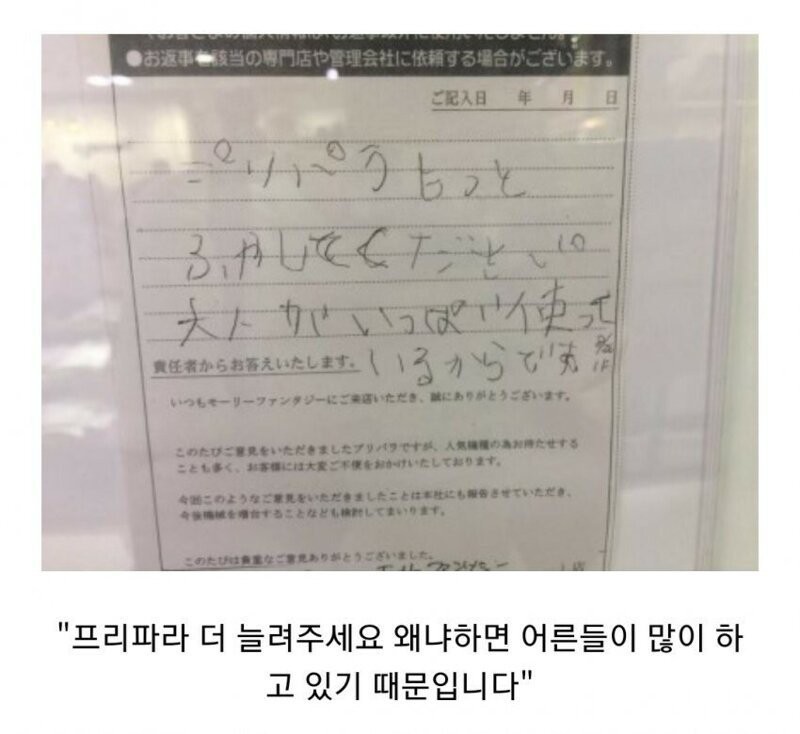 ●お返事を該当の専門店や管理会社に依頼する場合がございます。
ご記入日 年 月 日
プリパラもっと
ふやしてください
大人がいっぱい使って
いるからです
責任者からお答えいたします。
いつもモーリーファンタジーにご来店いただき、誠にありがとうございます。
このたびご意見をいただきましたプリパラですが、人気機種の為お待たせする
ことも多く、お客様には大変ご不便をおかけいたしております。
今回このようなご意見をいただきましたことは本社にも報告させていただき、
今後機械を増台することなども検討してまいります。
このたびは貴重なご意見ありがとうございました。
"프리파라 더 늘려주세요 왜냐하면 어른들이 많이 하
고 있기 때문입니다"